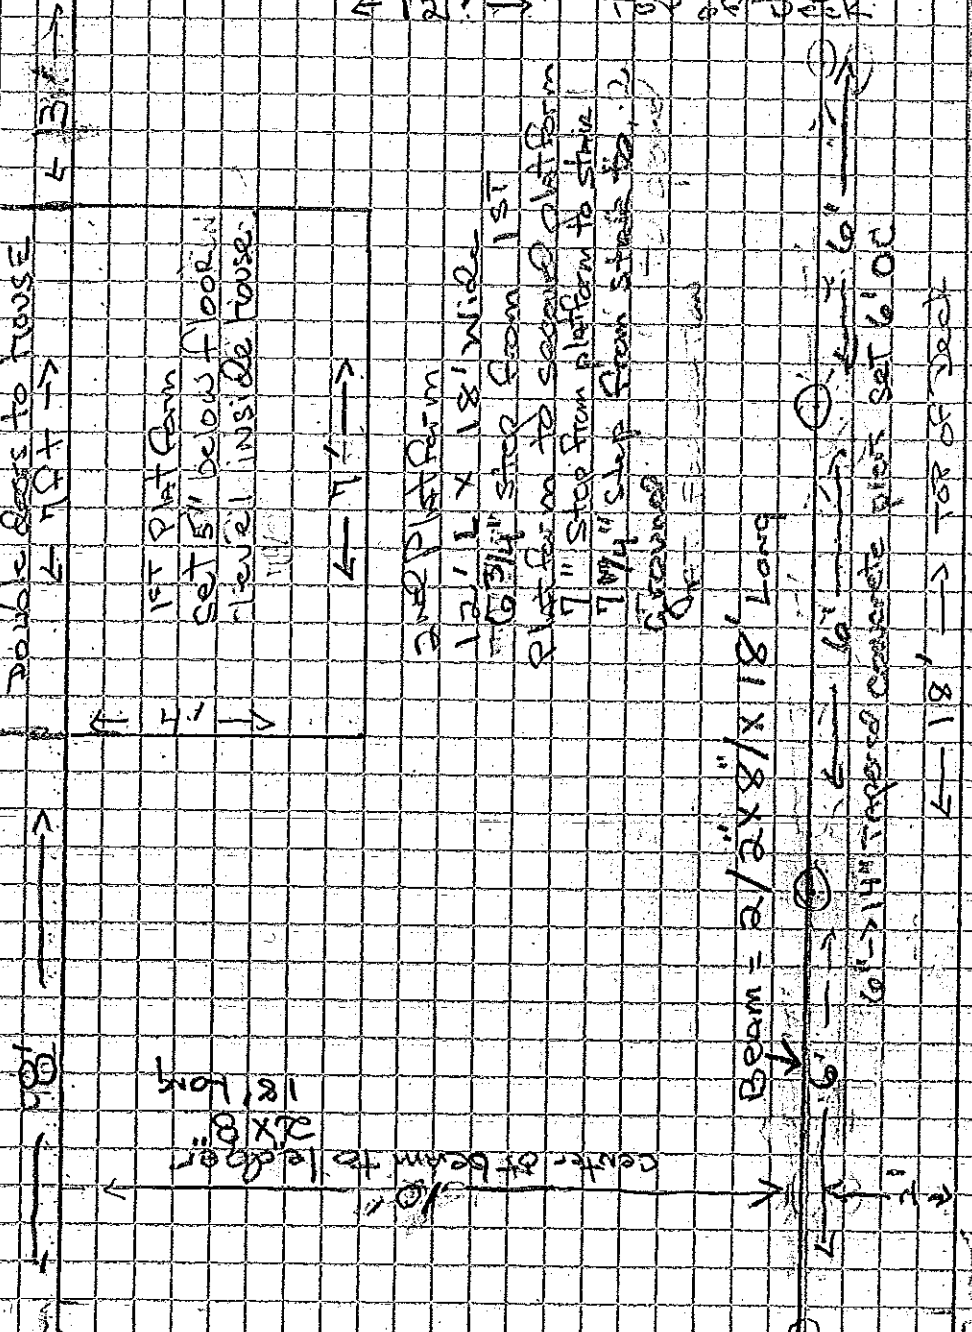 Double doors to House
7 ft
13'
1ST Platform
Set 5" below floor
level inside house.
4'
7'
2nd Platform
12' L x 18' wide
6 3/4" step from 1ST
Platform to second platform
7" Step from platform to stair
step from stair to
Ground
Beam = 2/2"x8"/x18' Long
6'
6'
6'
6"->14" Tapered concrete piers set 6' OC
18'
TOP OF Deck
12'
center of beam to ledger
2"x8"
18' Long
10'
2'